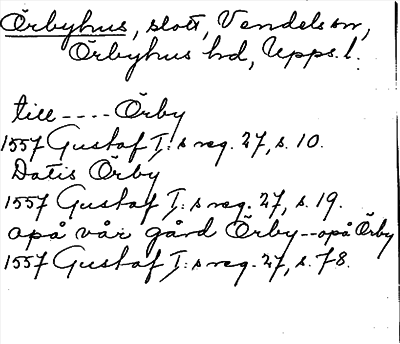 Örbyhus, slott, Vendels sn,
Örbyhus hd, Upps. l.
till ---- Örby
1557 Gustaf I:s reg. 27, s. 10.
Datis Örby
1557 Gustaf I:s reg. 27, s. 19.
opå vår gård Örby -- opå Örby
1557 Gustaf I:s reg. 27, s. 78.